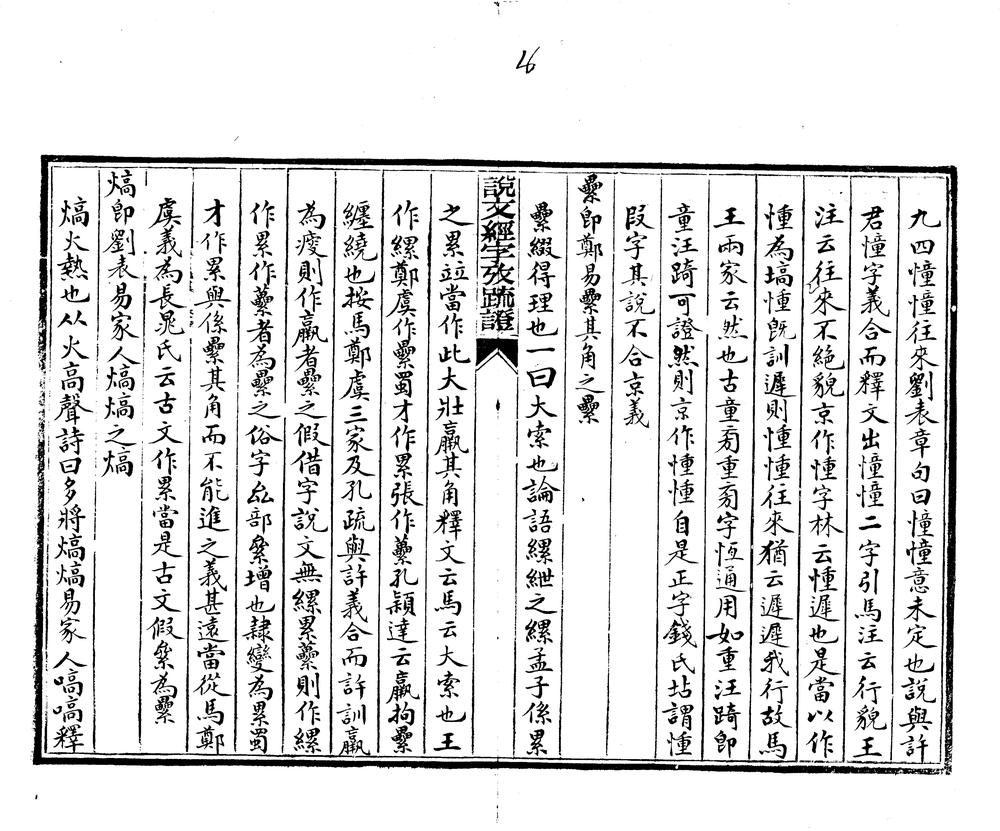 26
九四憧憧往來劉表章句曰憧憧意未定也說與許
君憧字義合而釋文出憧憧二字引馬注云行貌王
注云往來不絕貌京作𢤱字林云𢤱遲也是當以作
𢤱為塙𢤱既訓遲則𢤱𢤱往來猶云遲遲我行故馬
王兩家云然也古童㫄重㫄字恆通用如重汪踦即
童汪踦可證然則京作𢤱𢤱自是正字錢氏坫謂𢤱
叚字其說不合京義
纍即鄭易纍其角之纍
纍綴得理也一曰大索也論語縲紲之縲孟子係累
說文經字攷疏證
之累竝當作此大壯羸其角釋文云馬云大索也王
作縲鄭虞作纍蜀才作累張作虆孔穎達云羸拘纍
纏繞也按馬鄭虞三家及孔疏與許義合而許訓羸
為瘦則作羸者纍之假借字說文無縲累虆則作縲
作累作虆者為纍之俗字厽部絫增也隸變為累蜀
才作累與係纍其角而不能進之義甚遠當從馬鄭
虞義為長晁氏云古文作累當是古文假絫為纍
熇即劉表易家人熇熇之熇
熇火熱也从火高聲詩曰多將熇熇易家人嗃嗃釋